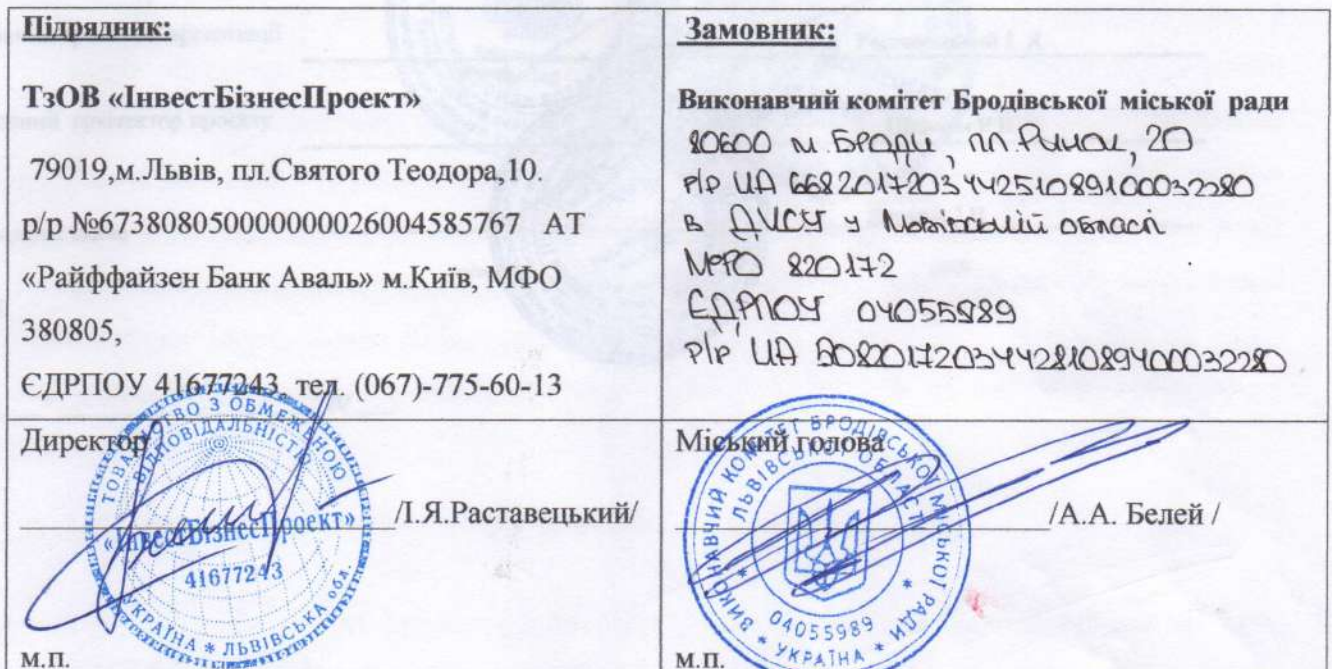 Підрядник:
ТзОВ «ІнвестБізнесПроект»
79019,м.Львів, пл.Святого Теодора,10.
р/р №6738080500000000026004585767 АТ
«Райффайзен Банк Аваль» м.Київ, МФО
380805,
ЄДРПОУ 41677243, тел. (067)-775-60-13
Директор
/І.Я.Раставецький/
ТОВАРИСТВО З ОБМЕЖЕНОЮ
ВІДПОВІДАЛЬНІСТЮ
«ІнвестБізнесПроект»
41677243
УКРАЇНА * ЛЬВІВСЬКА обл.
м.п.
Замовник:
Виконавчий комітет Бродівської міської ради
80600 м. Броди, пл. Ринок, 20
р/р UA 668201720344251089100032280
в ДКСУ у Львівській області
МФО 820172
ЄДРПОУ 04055989
р/р UA 508201720344281089400032280
Міський голова
/А.А. Белей /
ВИКОНАВЧИЙ КОМІТЕТ БРОДІВСЬКОЇ МІСЬКОЇ РАДИ
ЛЬВІВСЬКОЇ ОБЛАСТІ
04055989
* УКРАЇНА *
м.п.